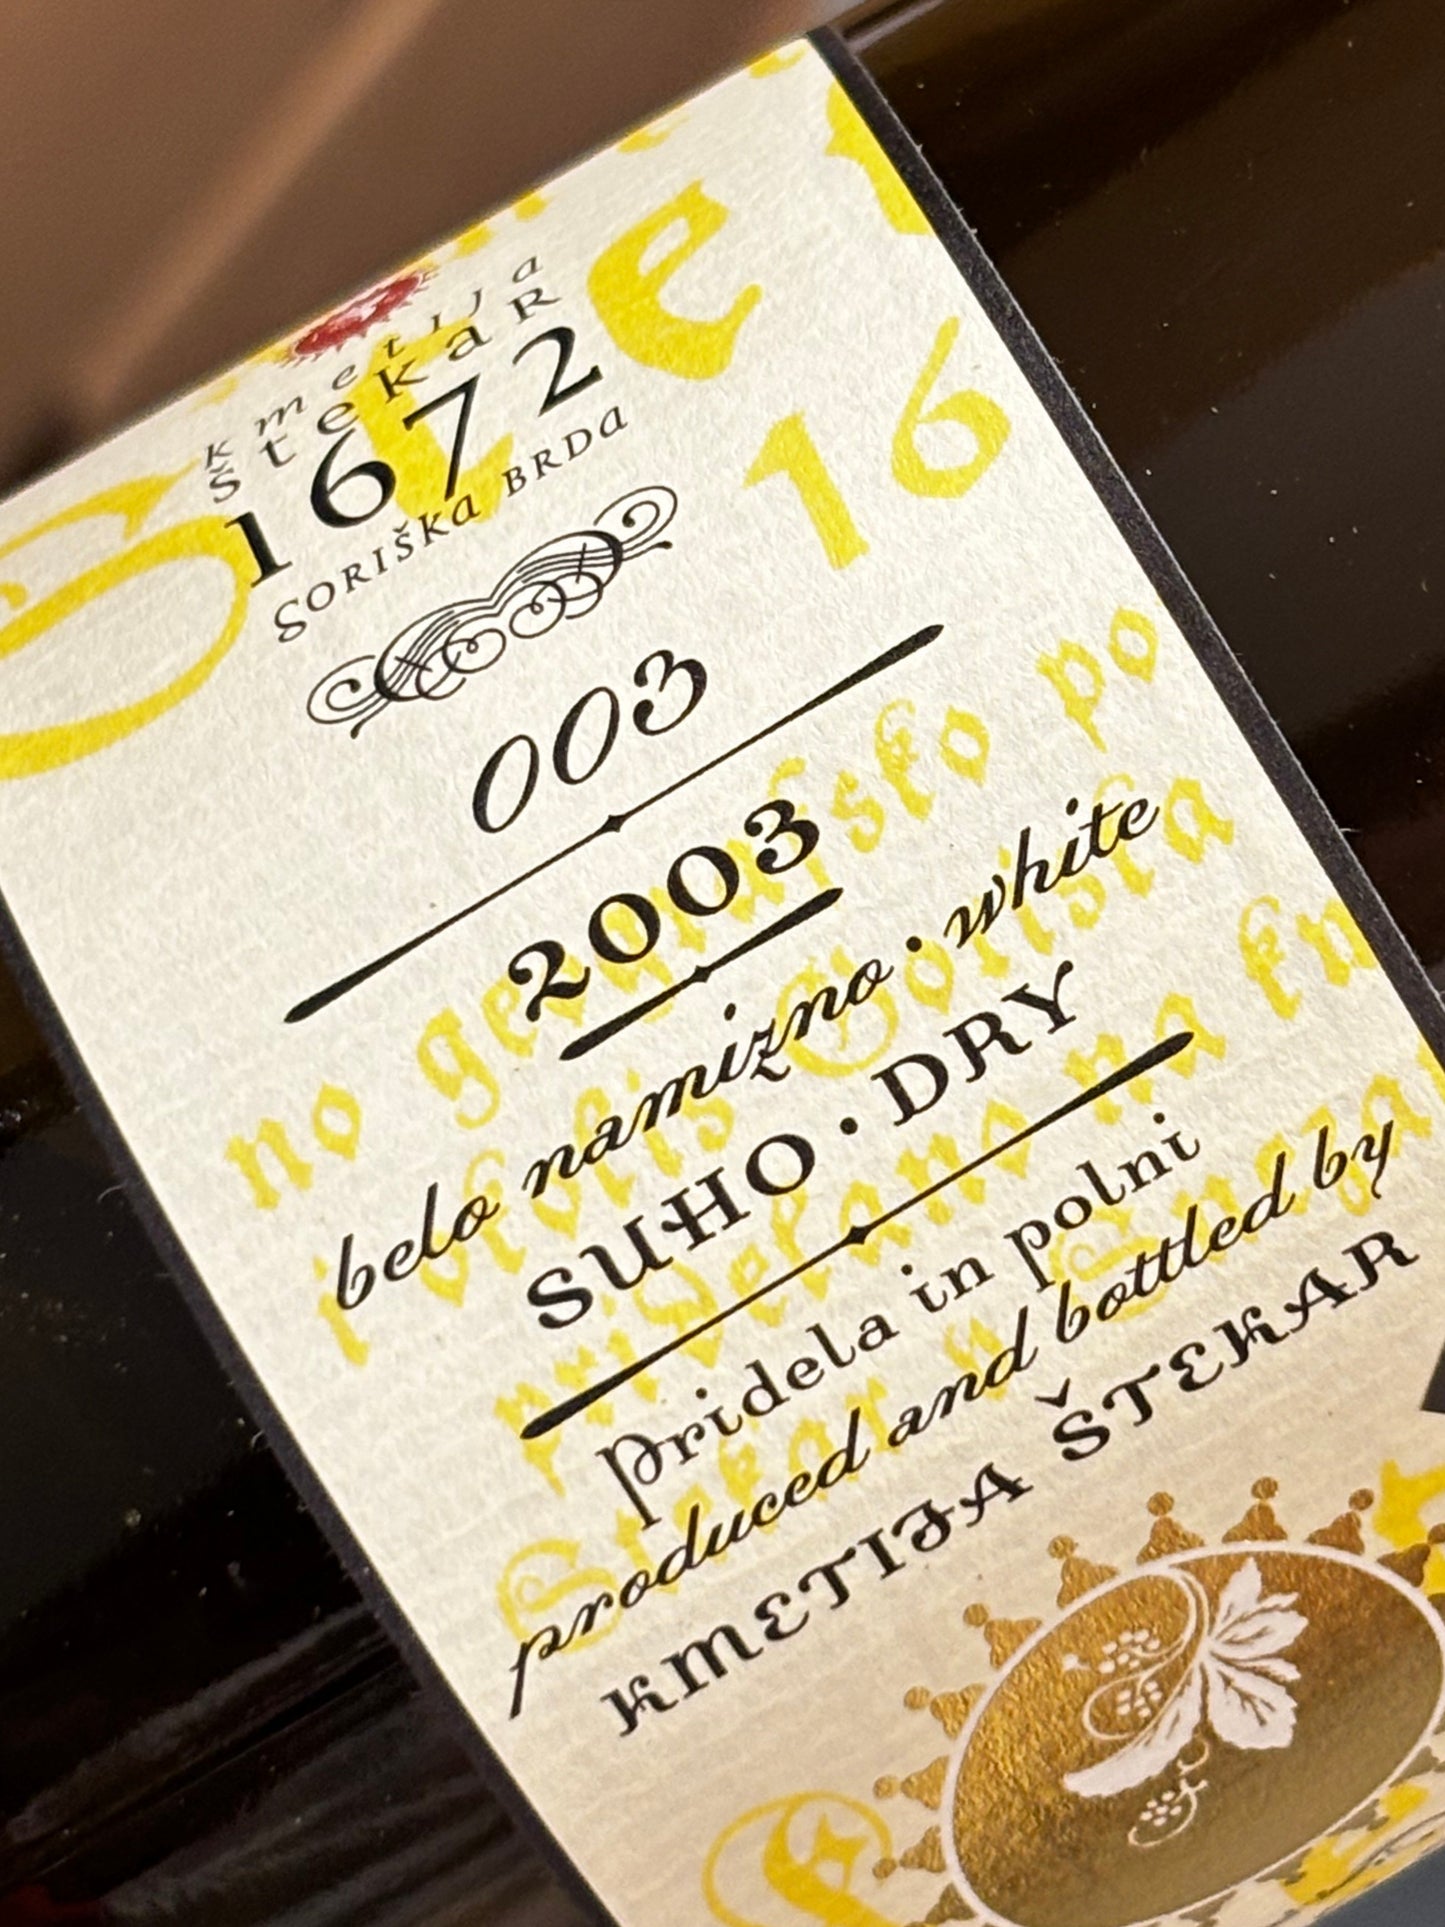 kmetija
štekar
1672
GORIŠka BRDa
003
2003
belo namizno · white
SUHO · DRY
Pridela in polni
produced and bottled by
KMETIJA ŠTEKAR
16